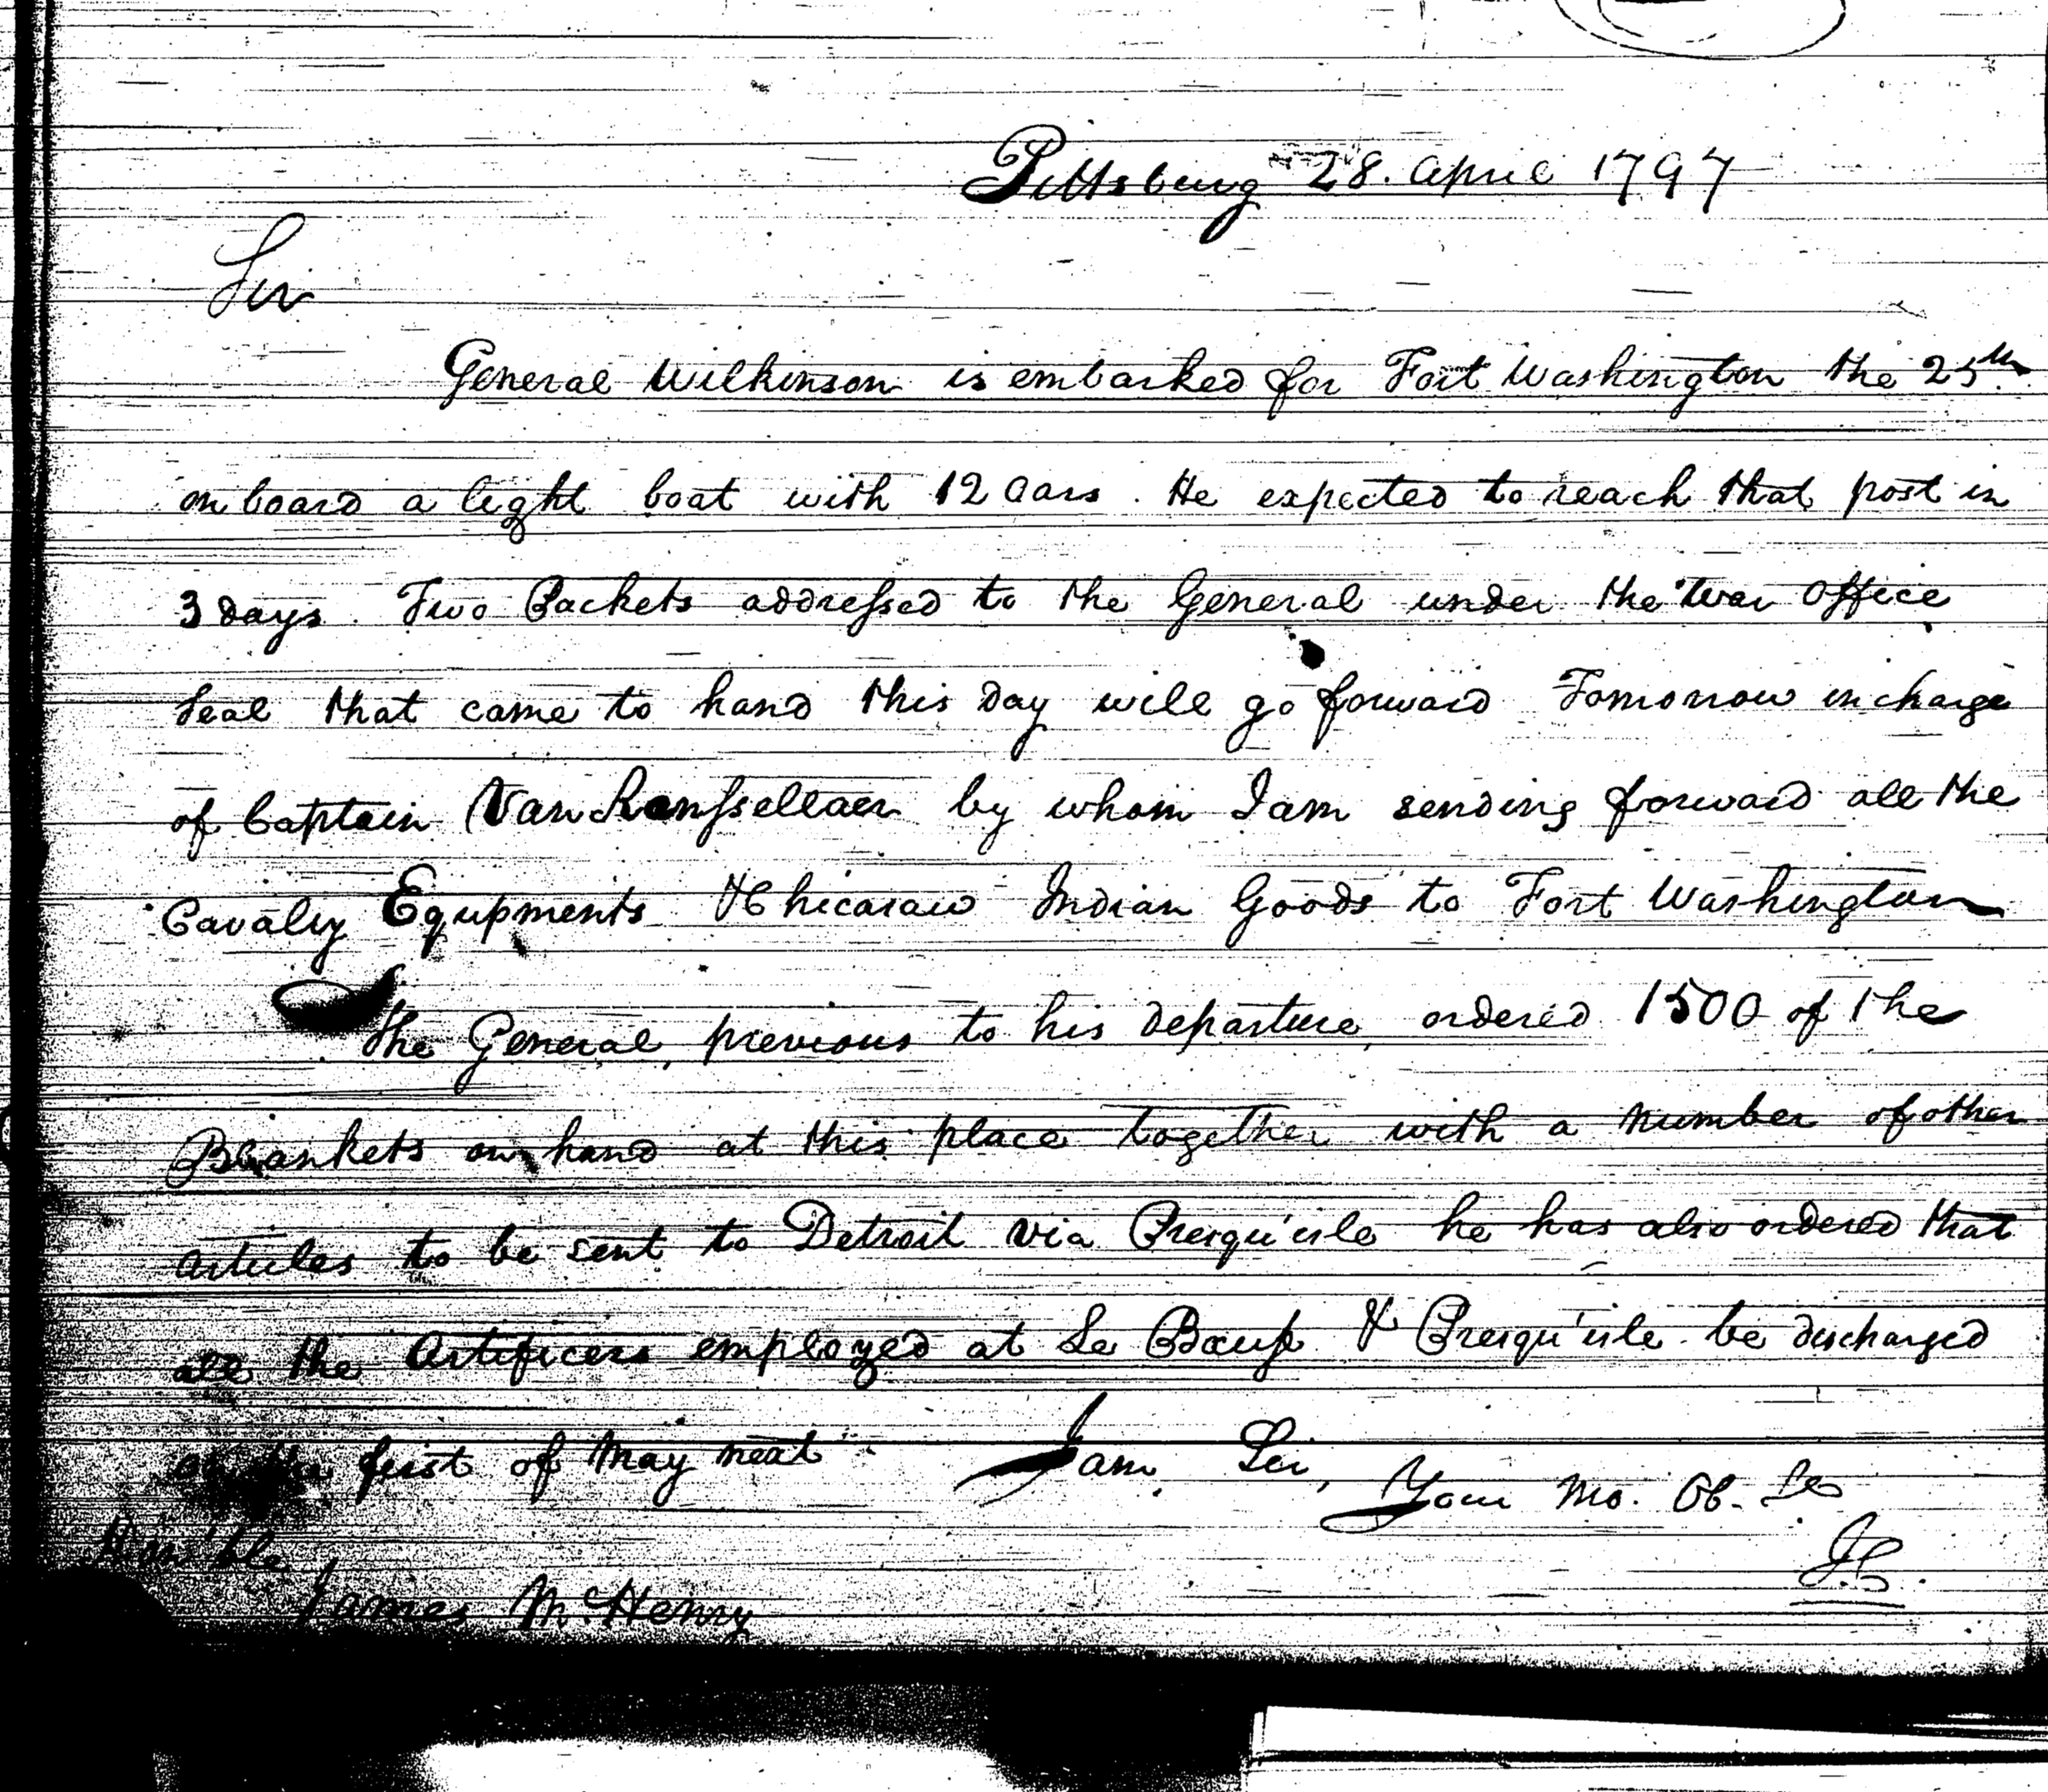 Pittsburg 28. April 1797
Sir
General Wilkinson is embarked for Fort Washington the 25th
on board a light boat with 12 oars. He expected to reach that post in
3 days. Two Packets addressed to the General under the War Office
Seal that came to hand this day will go forward Tomorrow in charge
of Captain Van Renssellaer by whom I am sending forward all the
Cavalry Equpments & Chicasaw Indian Goods to Fort Washington
The General, previous to his departure, ordered 1500 of the
Blankets on hand at this place together with a number of other
articles to be sent to Detroit via Presqu'isle he has also ordered that
all the Artificers employed at Le Bœuf & Presqu'isle be discharged
on the first of May next I am, Sir,
Your Mo. Ob. Se
Hon'ble
James McHenry